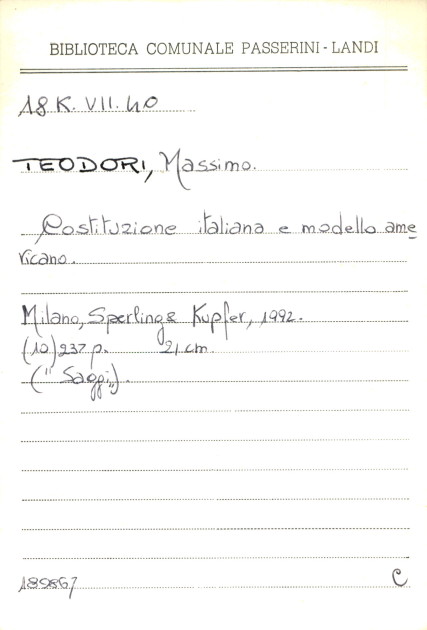 BIBLIOTECA COMUNALE PASSERINI - LANDI
18 K. VII. 40
TEODORI, Massimo.
Costituzione italiana e modello ame
ricano.
Milano, Sperling & Kupfer, 1992.
(10) 237 p. 21 cm.
("Saggi").
189867
C